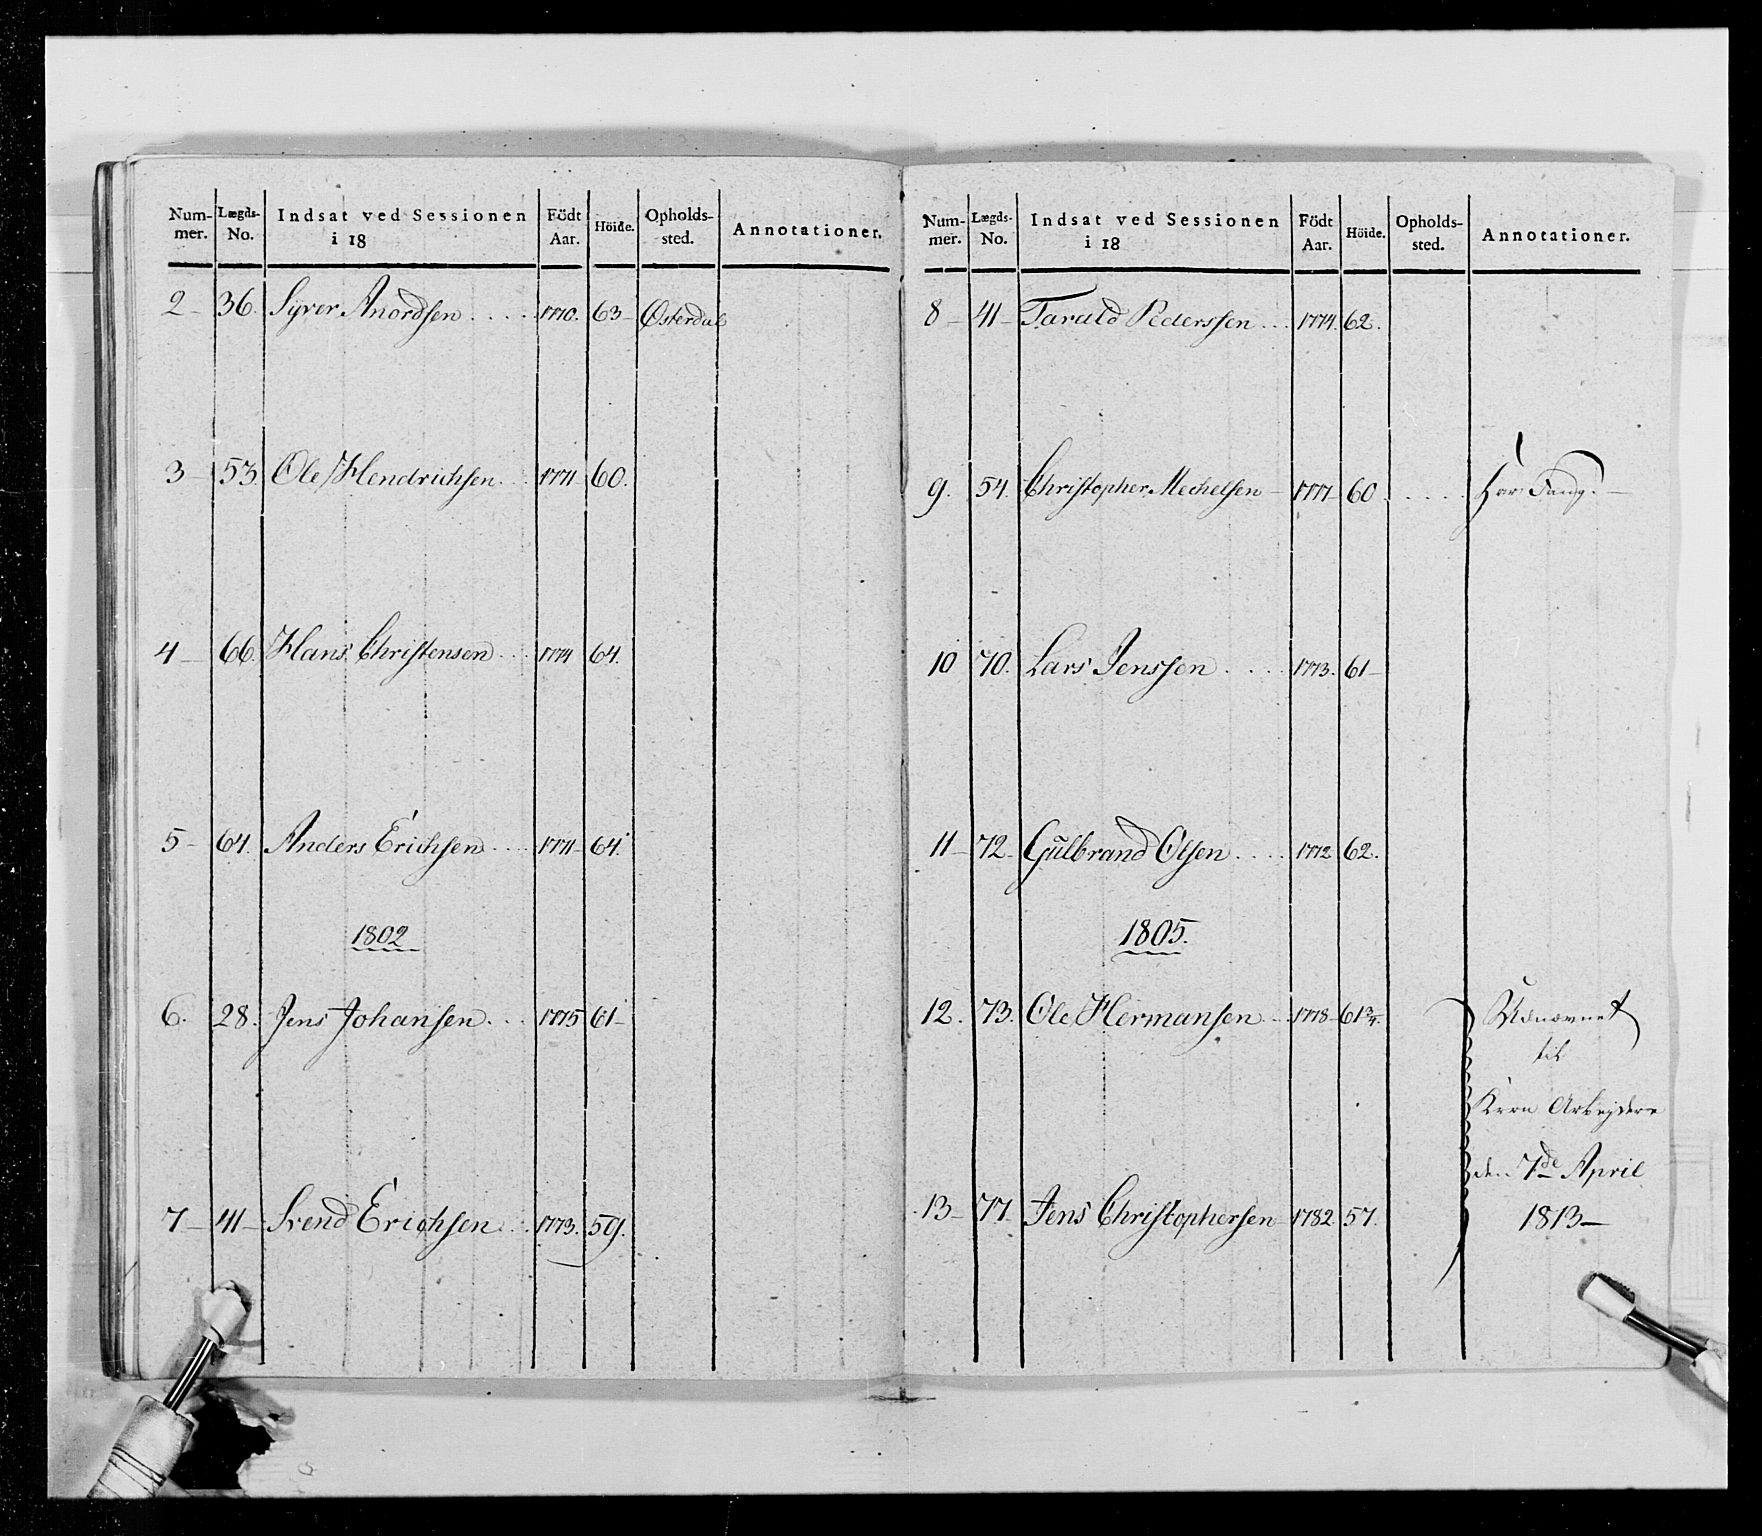 Num- Lægds- Indsat ved Sessionen Födt Höide. Opholds- Annotationer.
mer. No. i 18 Aar. sted.
2 - 36. Syver Anordsen .... 1770. 63 - Østerdal
3 - 53. Ole Hendrichsen .. 1771 60.
4 - 66. Hans Christensen ... 1774 64.
5 - 64. Anders Erichsen .... 1771- 64.
1802
6. 28. Jens Johansen. .. 1775 61-
7 - 41- Svend Erichsen .. 1773. 59.
Num- Lægds- Indsat ved Sessionen Födt Höide. Opholds- Annotationer.
mer. No. i 18 Aar. sted.
8 - 41- Tarald Pederssen ... 1774. 62.
9. 54. Christopher Mechelsen - 1771- 60. .... har
10 70. Lars Jenssen .... 1773. 61-
11- 72. Gulbrand Olsen .... 1772 62.
1805.
12. 73. Ole Hermansen - 1778- 61 3/4.
til
Arbejdere
den 7de April
13- 77. Jens Christophersen 1782 57. 1813-